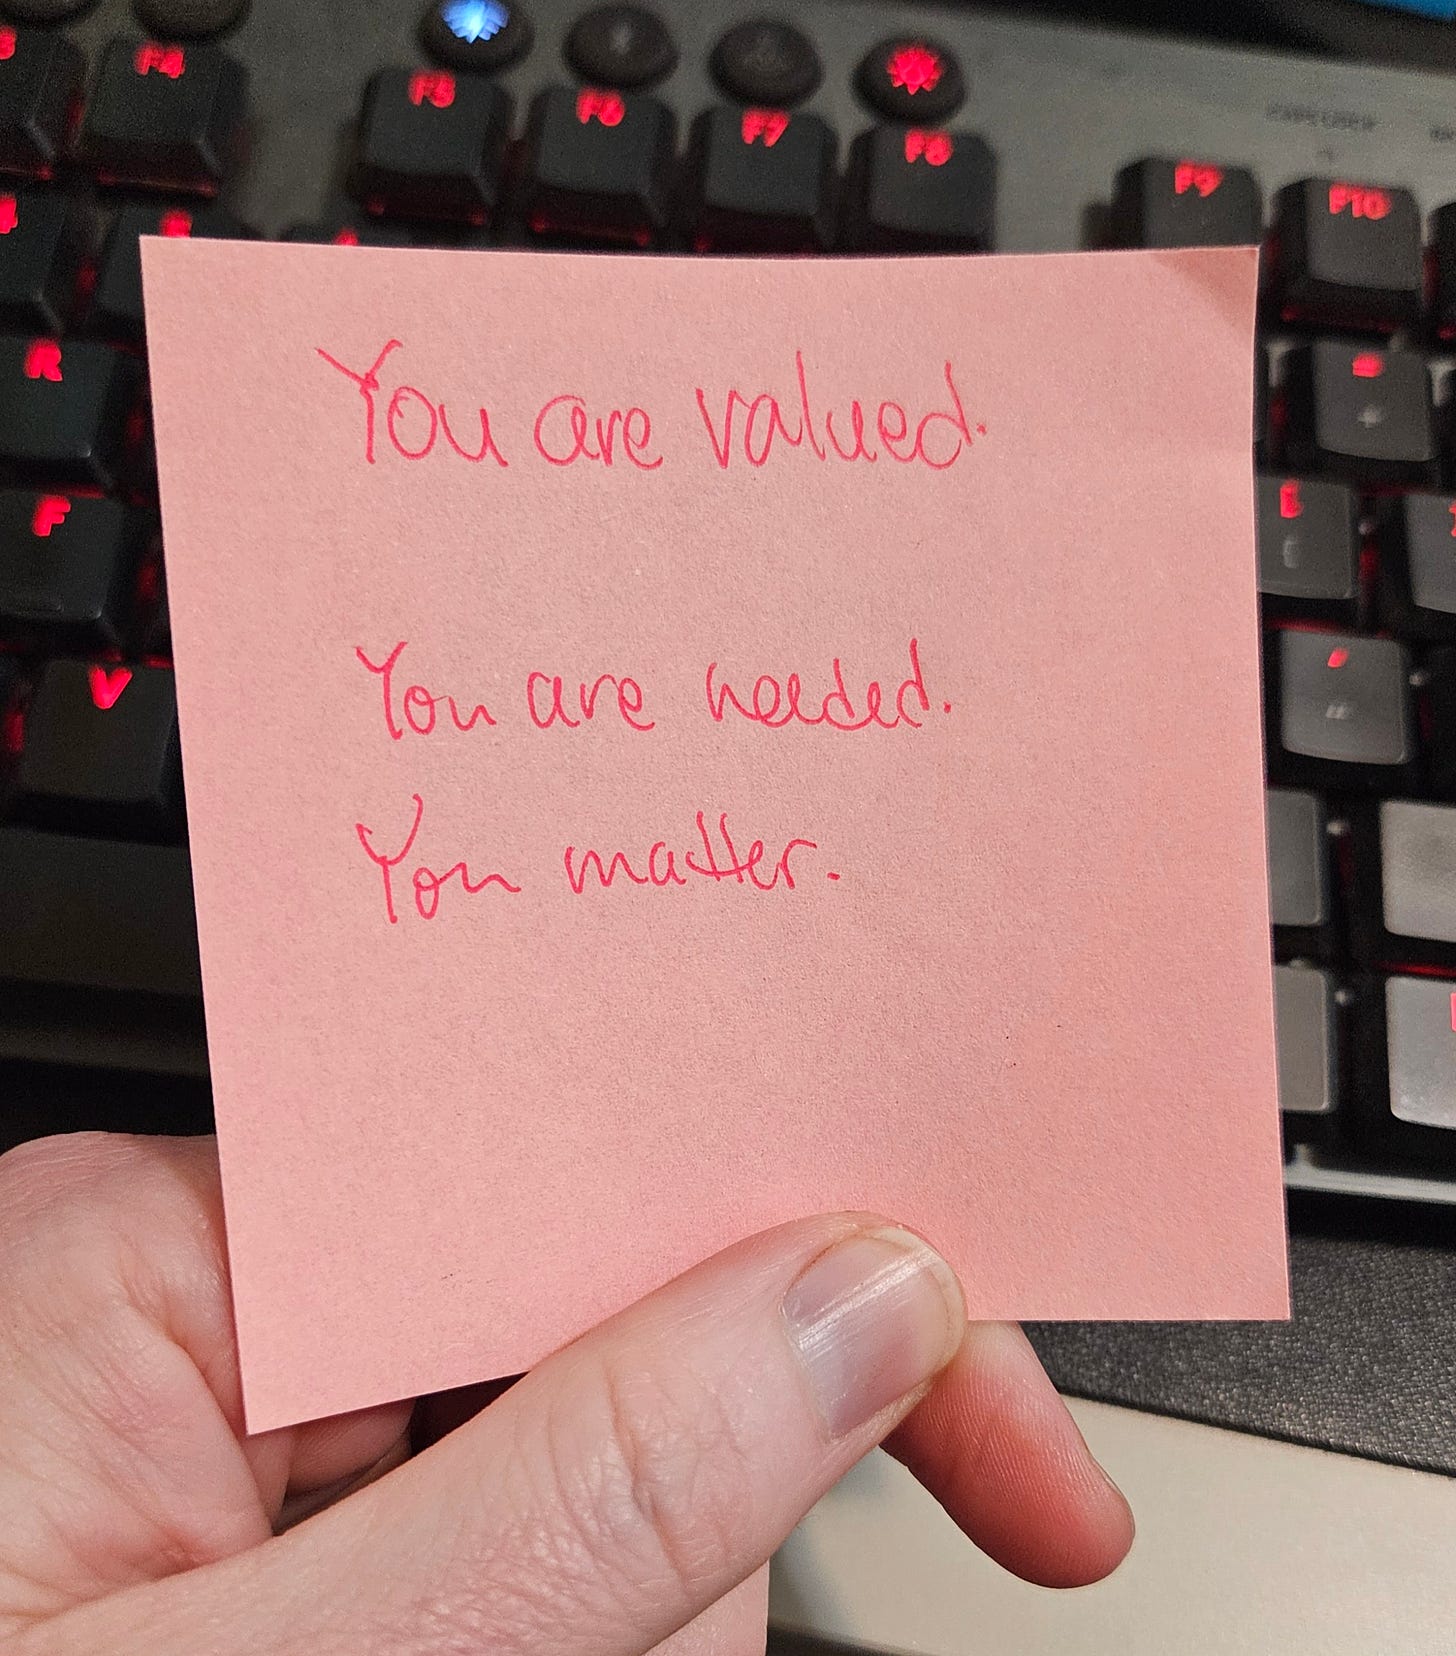 F4 F5 F6 F7 F8 F9 F10
R
F
V
You are valued.
You are needed.
You matter.